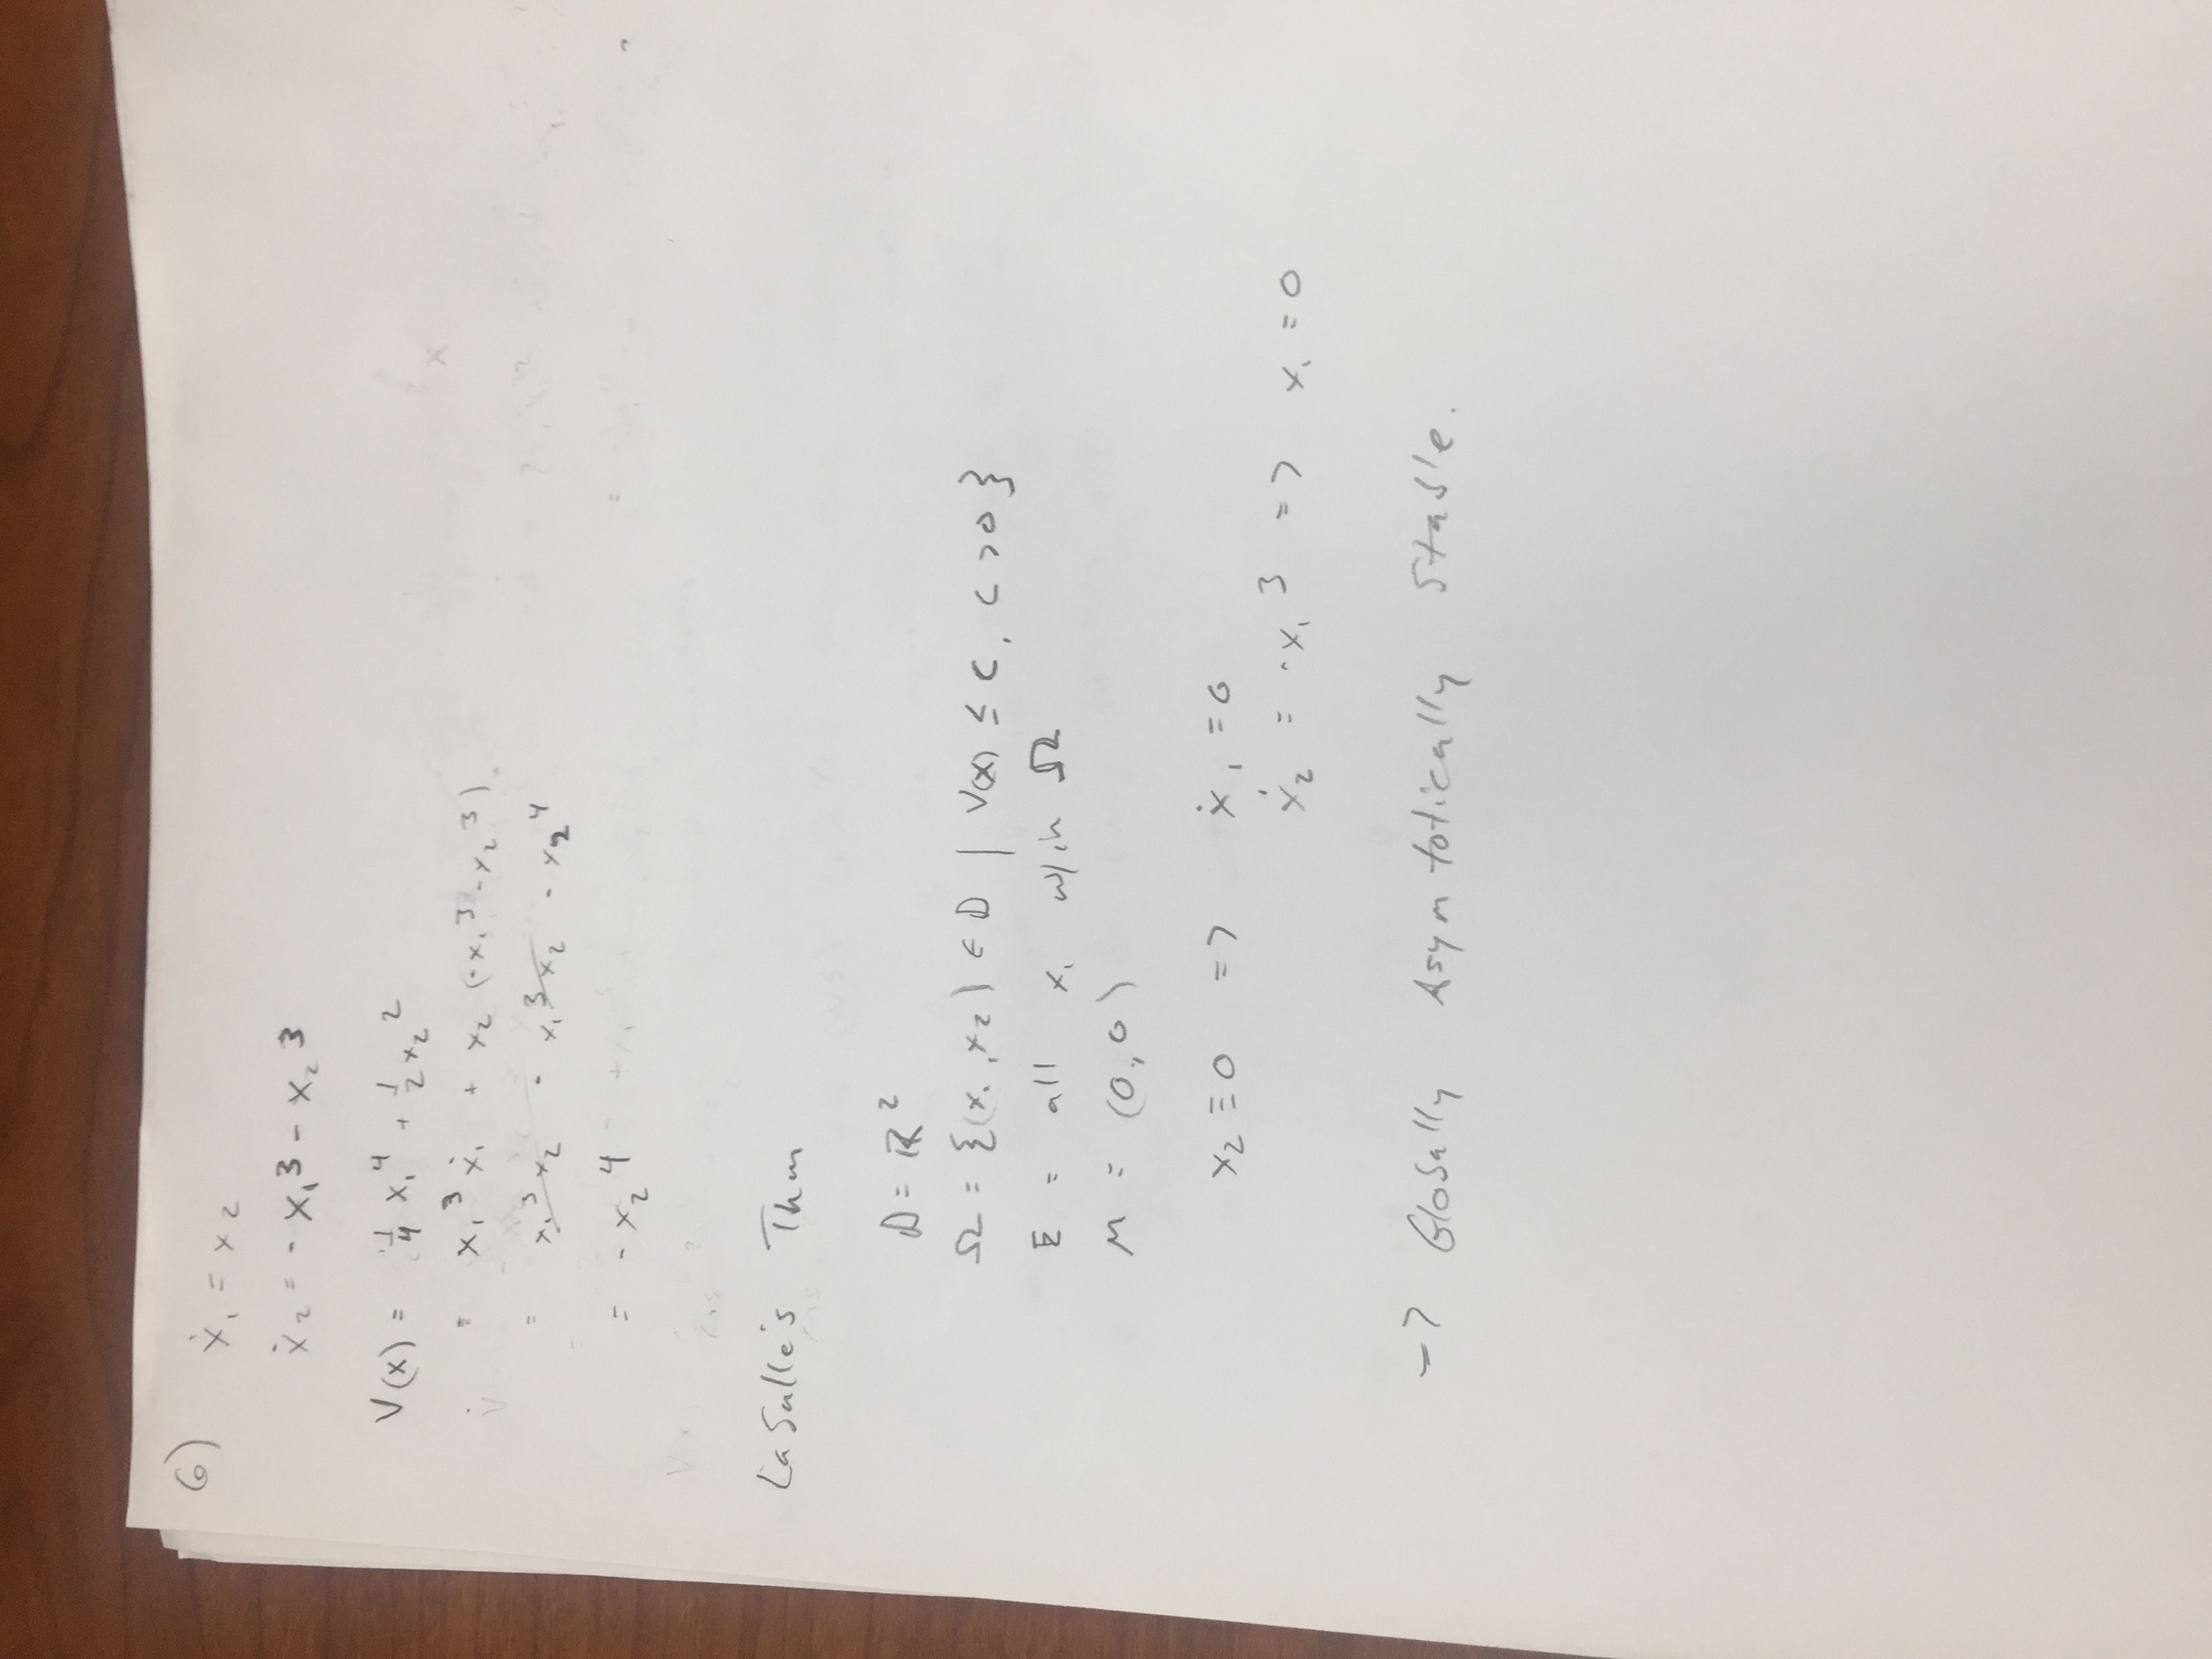 6) ẋ₁ = x₂
ẋ₂ = - x₁³ - x₂³
V(x) = 1/4 x₁⁴ + 1/2 x₂²
V̇ = x₁³ ẋ₁ + x₂ (-x₁³ - x₂³)
= x₁³ x₂ - x₁³ x₂ - x₂⁴
= - x₂⁴
LaSalle's Thm
D = ℝ²
Ω = {(x₁, x₂) ∈ D | V(x) ≤ C, C > 0}
E = all x₁ w/in Ω
M = (0,0)
x₂ ≡ 0 => ẋ₁ = 0
ẋ₂ = -x₁³ => x₁ = 0
=> Globally Asymtotically Stable.